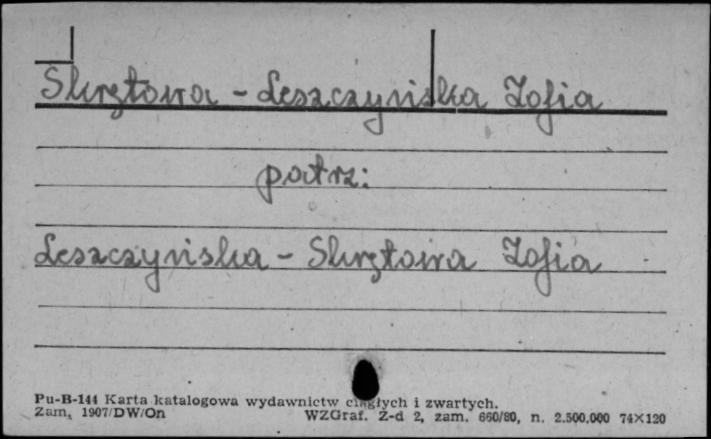 Skrętowa - Leszczyńska Zofia
patrz:
Leszczyńska - Skrętowa Zofia
Pu-B-144 Karta katalogowa wydawnictw ciągłych i zwartych.
Zam. 1907/DW/On WZGraf. Z-d 2, zam. 660/80, n. 2.500.000 74×120